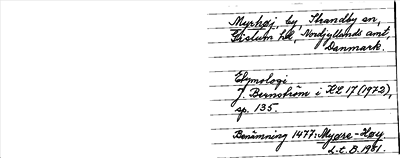 Myrhøj, by, Strandby sn,
Gislum hd, Nordjyllands amt,
Danmark.
Etymologi
J. Bernström i KL 17 (1972),
sp. 135.
Benämning 1477: Mygre-Høy
L.t.B. 1981.